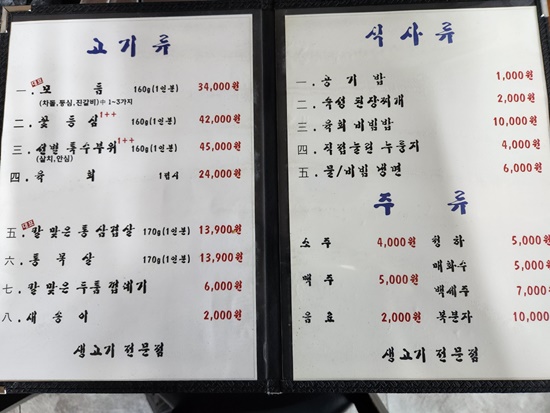 고기류
대표
一. 모듬 160g(1인분) 34,000원
(차돌,등심,진갈비)中 1~3가지
二. 꽃등심 1++ 160g(1인분) 42,000원
三. 선별 특수부위 1++ 160g(1인분) 45,000원
(살치,안심)
四. 육회 1접시 24,000원
대표
五. 칼맞은 통 삼겹살 170g(1인분) 13,900원
六. 통목살 170g(1인분) 13,900원
七. 칼맞은 두툼 껍데기 6,000원
八. 새송이 2,000원
생고기 전문점
식사류
一. 공기밥 1,000원
二. 숙성 된장찌개 2,000원
三. 육회 비빔밥 10,000원
四. 직접눌린 누룽지 4,000원
五. 물/비빔 냉면 6,000원
주류
소주 4,000원 청하 5,000원
매화수 5,000원
맥주 5,000원
백세주 7,000원
음료 2,000원 복분자 10,000원
생고기 전문점